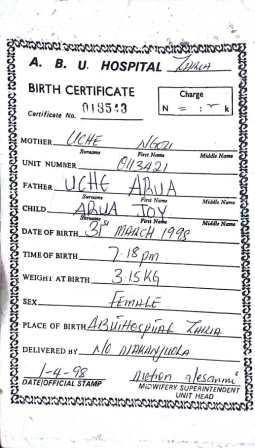 A. B. U. HOSPITAL Zaria
BIRTH CERTIFICATE
Charge
Certificate No. 018543
N = : k
MOTHER UCHE NGOZI
Surname First Name Middle Name
UNIT NUMBER 0113421
FATHER UCHE ABUA
Surname First Name Middle Name
CHILD ABUA JOY
Surname First Name Middle Name
DATE OF BIRTH 31st MARCH 1998
TIME OF BIRTH 7.18pm
WEIGHT AT BIRTH 3.15KG
SEX FEMALE
PLACE OF BIRTH ABUHospital Zaria
DELIVERED BY N/O
1-4-98
DATE/OFFICIAL STAMP
MIDWIFERY SUPERINTENDENT
UNIT HEAD